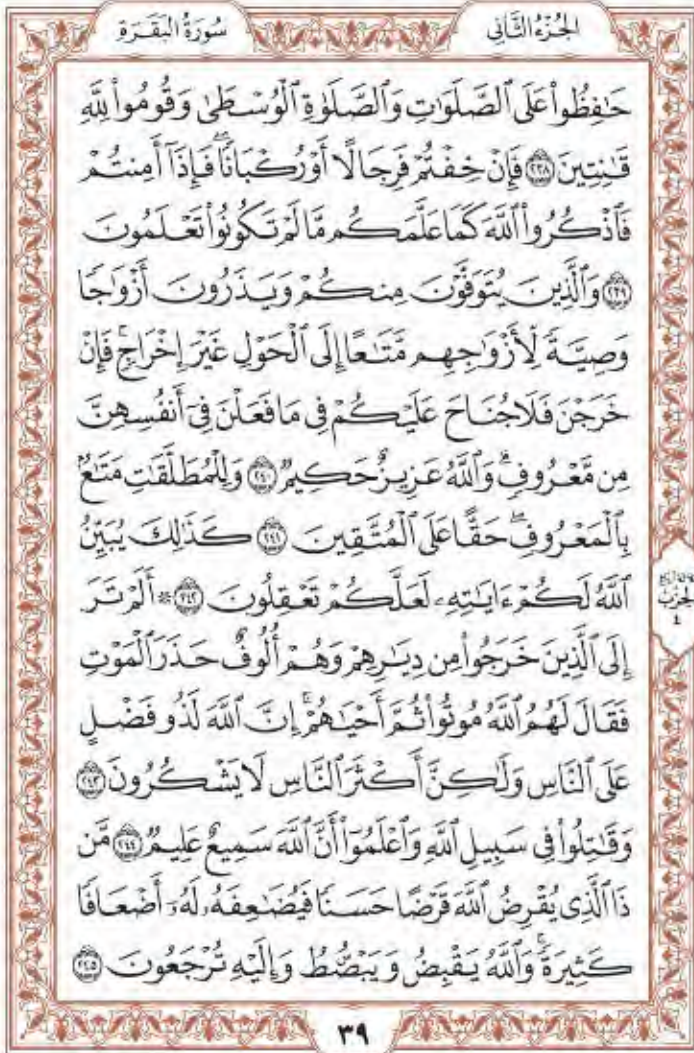 سُورَةُ البَقَرَةِ
الجُزْءُ الثَّانِي
حَـٰفِظُوا۟ عَلَى ٱلصَّلَوَٰتِ وَٱلصَّلَوٰةِ ٱلْوُسْطَىٰ وَقُومُوا۟ لِلَّهِ
قَـٰنِتِينَ ٢٣٨ فَإِنْ خِفْتُمْ فَرِجَالًا أَوْ رُكْبَانًا ۖ فَإِذَآ أَمِنتُمْ
فَٱذْكُرُوا۟ ٱللَّهَ كَمَا عَلَّمَكُم مَّا لَمْ تَكُونُوا۟ تَعْلَمُونَ
٢٣٩ وَٱلَّذِينَ يُتَوَفَّوْنَ مِنكُمْ وَيَذَرُونَ أَزْوَٰجًا
وَصِيَّةً لِّأَزْوَٰجِهِم مَّتَـٰعًا إِلَى ٱلْحَوْلِ غَيْرَ إِخْرَاجٍ ۚ فَإِنْ
خَرَجْنَ فَلَا جُنَاحَ عَلَيْكُمْ فِى مَا فَعَلْنَ فِىٓ أَنفُسِهِنَّ
مِن مَّعْرُوفٍ ۗ وَٱللَّهُ عَزِيزٌ حَكِيمٌ ٢٤٠ وَلِلْمُطَلَّقَـٰتِ مَتَـٰعٌۢ
بِٱلْمَعْرُوفِ ۖ حَقًّا عَلَى ٱلْمُتَّقِينَ ٢٤١ كَذَٰلِكَ يُبَيِّنُ
ٱللَّهُ لَكُمْ ءَايَـٰتِهِۦ لَعَلَّكُمْ تَعْقِلُونَ ٢٤٢ ۞ أَلَمْ تَرَ
إِلَى ٱلَّذِينَ خَرَجُوا۟ مِن دِيَـٰرِهِمْ وَهُمْ أُلُوفٌ حَذَرَ ٱلْمَوْتِ
فَقَالَ لَهُمُ ٱللَّهُ مُوتُوا۟ ثُمَّ أَحْيَـٰهُمْ ۚ إِنَّ ٱللَّهَ لَذُو فَضْلٍ
عَلَى ٱلنَّاسِ وَلَـٰكِنَّ أَكْثَرَ ٱلنَّاسِ لَا يَشْكُرُونَ ٢٤٣
وَقَـٰتِلُوا۟ فِى سَبِيلِ ٱللَّهِ وَٱعْلَمُوٓا۟ أَنَّ ٱللَّهَ سَمِيعٌ عَلِيمٌ ٢٤٤ مَّن
ذَا ٱلَّذِى يُقْرِضُ ٱللَّهَ قَرْضًا حَسَنًا فَيُضَـٰعِفَهُۥ لَهُۥٓ أَضْعَافًا
كَثِيرَةً ۚ وَٱللَّهُ يَقْبِضُ وَيَبْصُۜطُ وَإِلَيْهِ تُرْجَعُونَ ٢٤٥
الحِزْب
٤
٣٩